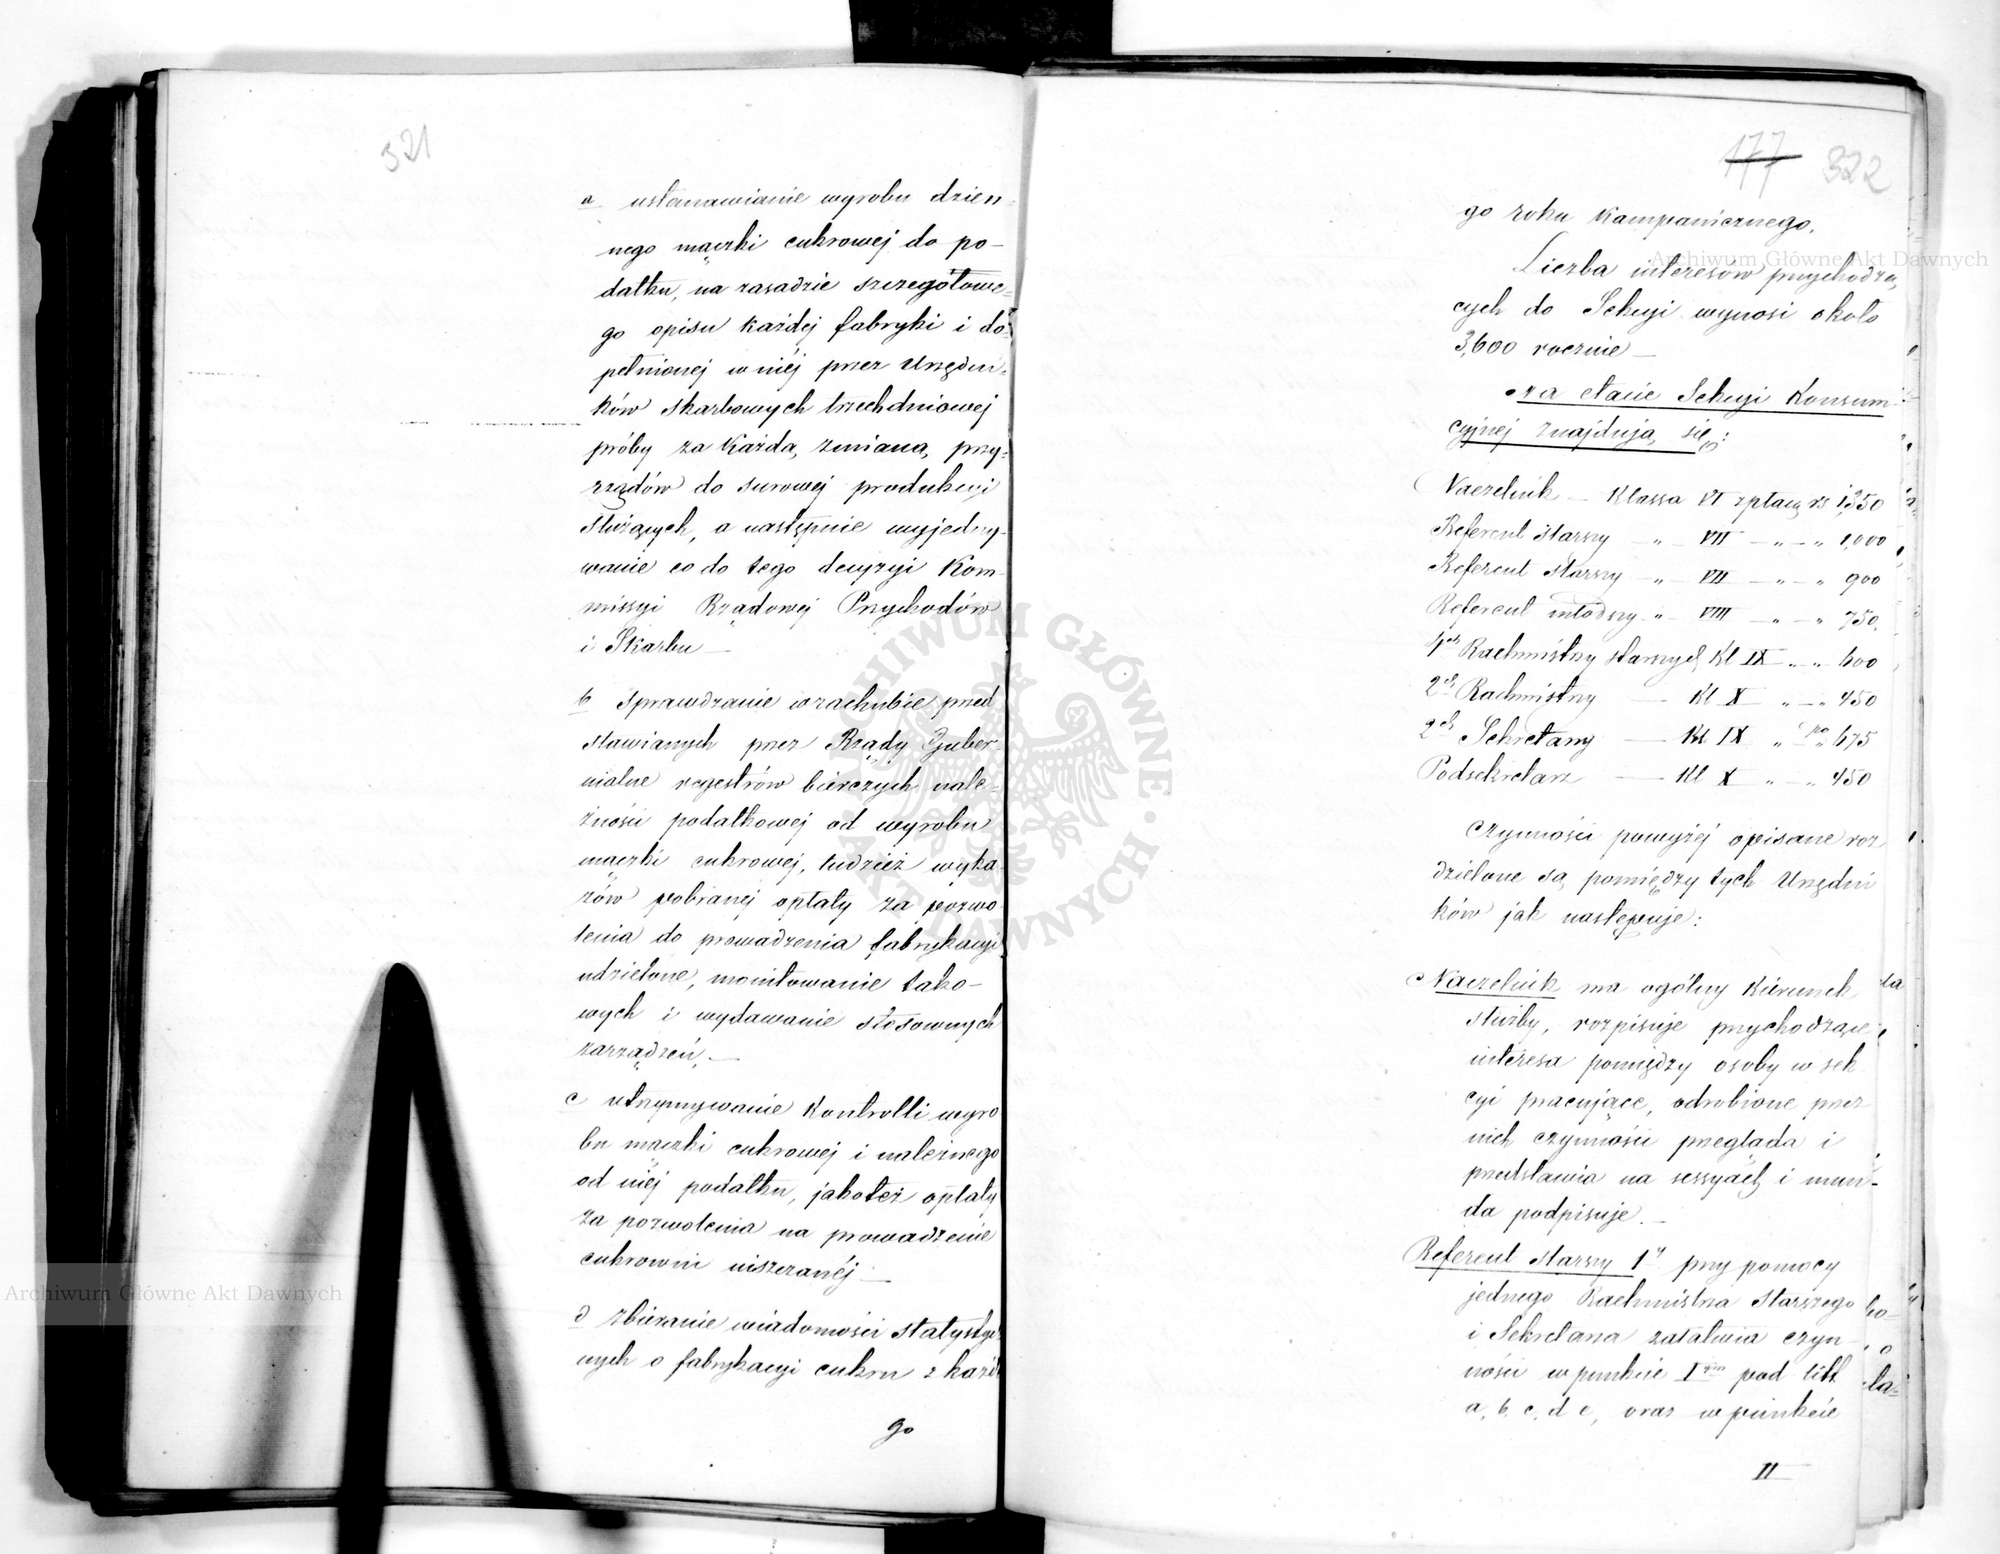 321
a ustanawianie wyrobu dzien-
nego mączki cukrowej do po-
datku, na zasadzie szczegółowe-
go opisu każdej fabryki i do-
pełnionej w niéj przez Urzędni-
ków skarbowych trzechdniowej
próby za każdą zmianą przy-
rządów do surowej produkcyi
służących, a następnie wyjedny-
wanie co do tego decyzyi Kom-
missyi Rządowej Przychodów
i Skarbu —
b Sprawdzanie w rachubie przed
stawianych przez Rządy Guber-
nialne regestrów biérczych nale-
żności podatkowej od wyrobu
mączki cukrowej, tudzież wyka-
zów pobranej opłaty za pozwo-
lenia do prowadzenia fabrykacyi
udzielone, monitowanie tako-
wych i wydawanie stosownych
zarządzeń. —
c utrzymywanie kontrolli wyro
bu mączki cukrowej i należnego
od niéj podatku, jakoteż opłaty
za pozwolenia na prowadzenie
cukrowni uiszczanéj —
d zbiéranie wiadomości statystycz-
nych o fabrykacyi cukru z każde
go
177 322
go roku kampanicznego.
Liczba interesów przychodzą
cych do Sekcyi wynosi około
3,600 rocznie —
Na etacie Sekcyi Konsum-
cyjnej znajdują się:
Naczelnik — Klassa VI z płacą rs 1,350
Referent starszy — „ — VII — „ — „ 1,000
Referent starszy — „ — VII — „ — „ 900
Referent młodszy — „ — VIII — „ — „ 750.
4ch Rachmistrzy starszych Kl IX „ — „ 600
2ch Rachmistrzy — Kl X „ — „ 450
2ch Sekretarzy — Kl IX „ po „ 675
Podsekretarz — Kl X „ — „ 450
Czynności powyżéj opisane roz
dzielone są pomiędzy tych Urzędni
ków jak następuje:
Naczelnik ma ogólny kiérunek
służby, rozpisuje przychodzące
interesa pomiędzy osoby w sek
cyi pracujące, odrobione przez
nich czynności przegląda i
przedstawia na sessyach i mun-
da podpisuje. —
Referent starszy 1y przy pomocy
jednego Rachmistrza Starszego
i Sekretarza załatwia czyn-
ności w punkcie Iym pod litt
a, b, c, d e, oraz w punkcie
II
Archiwum Główne Akt Dawnych
Archiwum Główne Akt Dawnych
ARCHIWUM GŁÓWNE AKT DAWNYCH